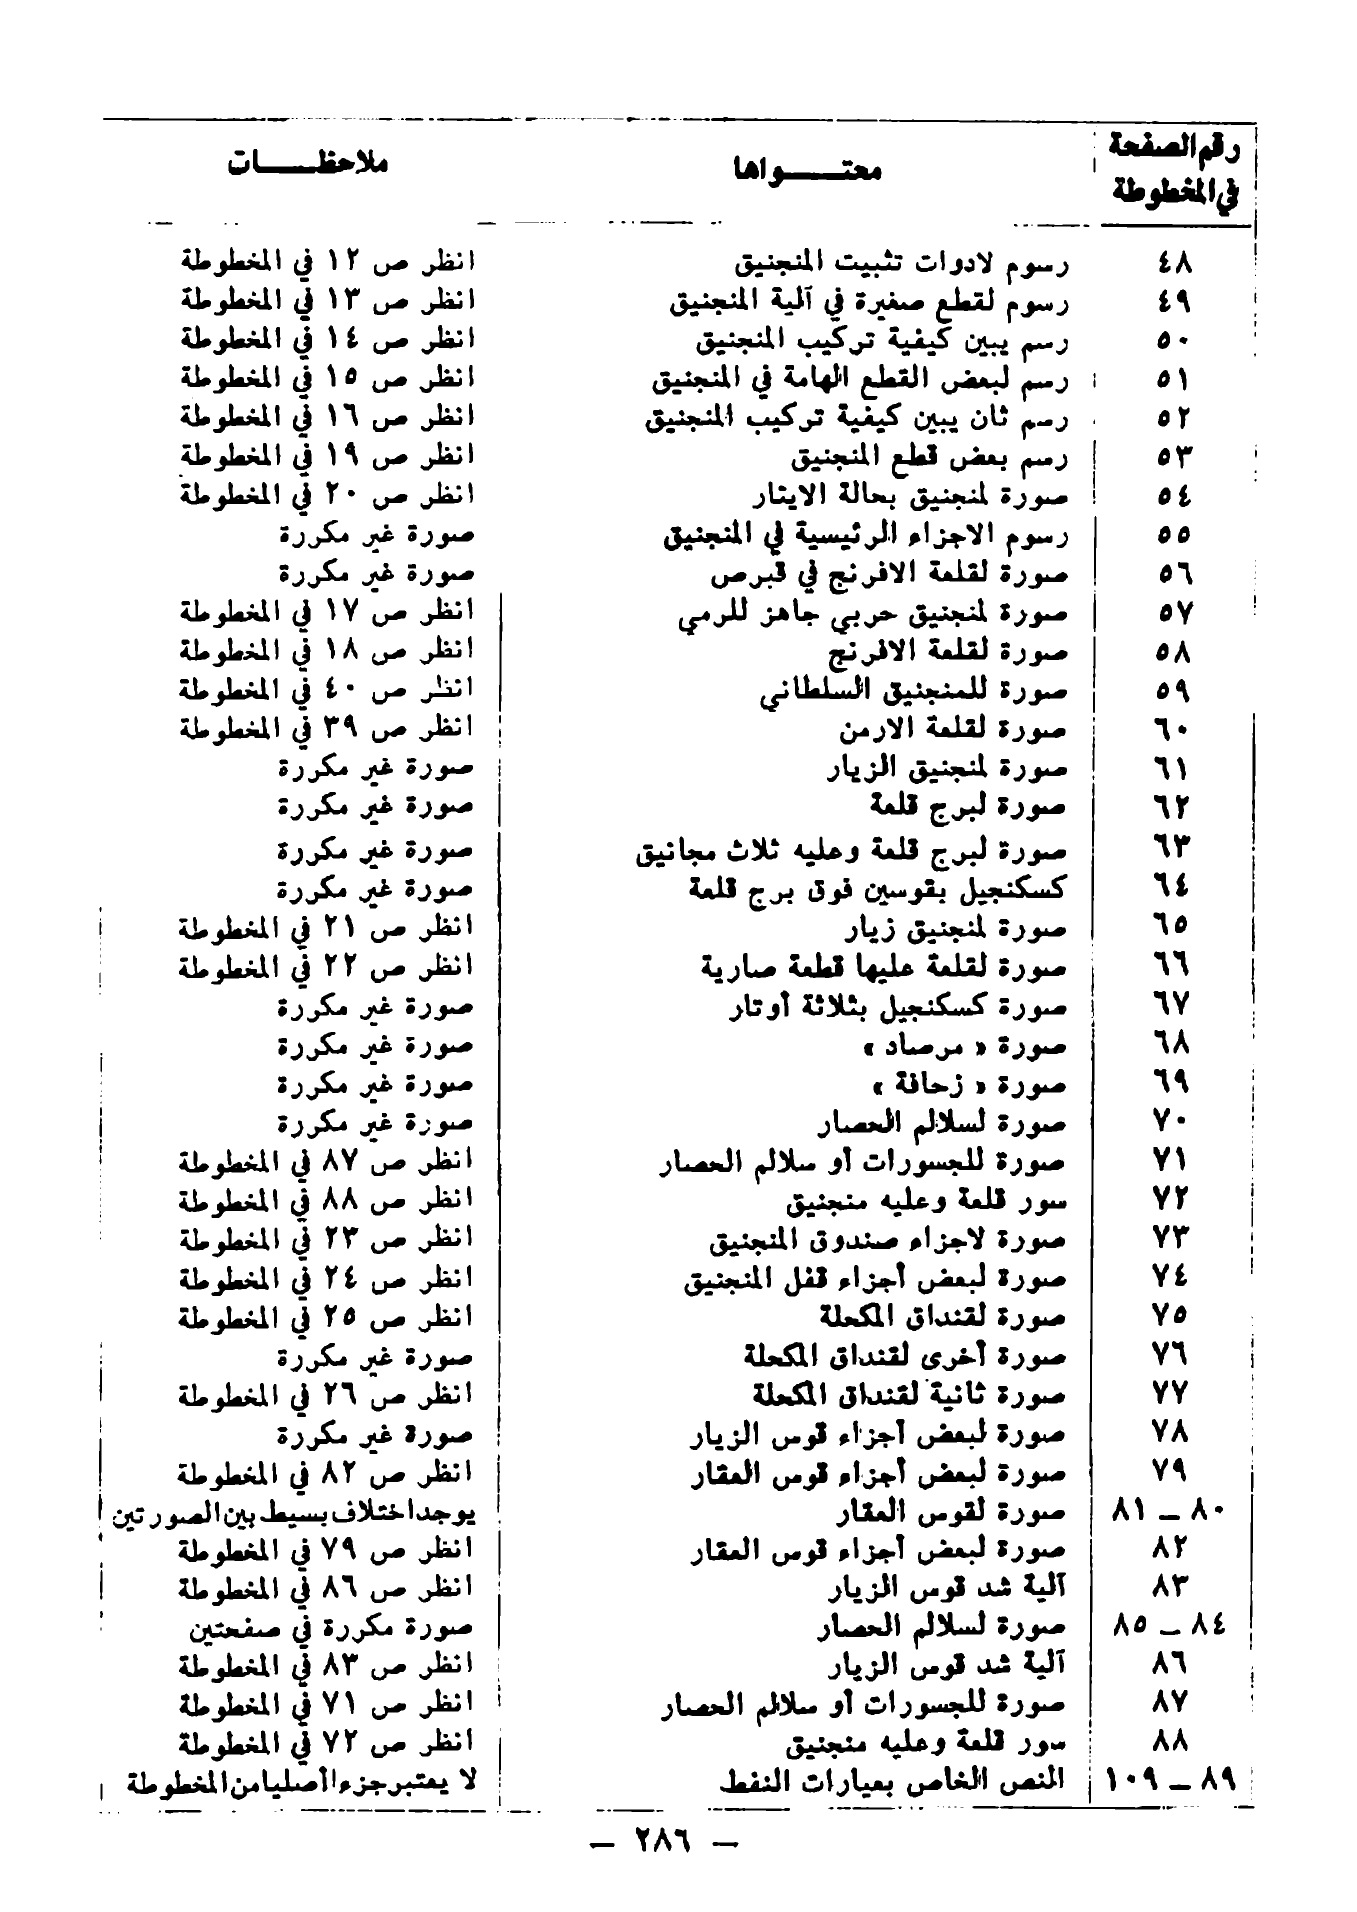 رقم الصفحة في المخطوطة | محتــــواها | ملاحظـــــات
٤٨ | رسوم لادوات تثبيت المنجنيق | انظر ص ١٢ في المخطوطة
٤٩ | رسوم لقطع صغيرة في آلية المنجنيق | انظر ص ١٣ في المخطوطة
٥٠ | رسم يبين كيفية تركيب المنجنيق | انظر ص ١٤ في المخطوطة
٥١ | رسم لبعض القطع الهامة في المنجنيق | انظر ص ١٥ في المخطوطة
٥٢ | رسم ثان يبين كيفية تركيب المنجنيق | انظر ص ١٦ في المخطوطة
٥٣ | رسم بعض قطع المنجنيق | انظر ص ١٩ في المخطوطة
٥٤ | صورة لمنجنيق بحالة الايثار | انظر ص ٢٠ في المخطوطة
٥٥ | رسوم الاجزاء الرئيسية في المنجنيق | صورة غير مكررة
٥٦ | صورة لقلعة الافرنج في قبرص | صورة غير مكررة
٥٧ | صورة لمنجنيق حربي جاهز للرمي | انظر ص ١٧ في المخطوطة
٥٨ | صورة لقلعة الافرنج | انظر ص ١٨ في المخطوطة
٥٩ | صورة للمنجنيق السلطاني | انظر ص ٤٠ في المخطوطة
٦٠ | صورة لقلعة الارمن | انظر ص ٣٩ في المخطوطة
٦١ | صورة لمنجنيق الزيار | صورة غير مكررة
٦٢ | صورة لبرج قلعة | صورة غير مكررة
٦٣ | صورة لبرج قلعة وعليه ثلاث مجانيق | صورة غير مكررة
٦٤ | كسكنجيل بقوسين فوق برج قلعة | صورة غير مكررة
٦٥ | صورة لمنجنيق زيار | انظر ص ٢١ في المخطوطة
٦٦ | صورة لقلعة عليها قطعة صارية | انظر ص ٢٢ في المخطوطة
٦٧ | صورة كسكنجيل بثلاثة أوتار | صورة غير مكررة
٦٨ | صورة « مرصاد » | صورة غير مكررة
٦٩ | صورة « زحافة » | صورة غير مكررة
٧٠ | صورة لسلالم الحصار | صورة غير مكررة
٧١ | صورة للجسورات أو سلالم الحصار | انظر ص ٨٧ في المخطوطة
٧٢ | سور قلعة وعليه منجنيق | انظر ص ٨٨ في المخطوطة
٧٣ | صورة لاجزاء صندوق المنجنيق | انظر ص ٢٣ في المخطوطة
٧٤ | صورة لبعض أجزاء قفل المنجنيق | انظر ص ٢٤ في المخطوطة
٧٥ | صورة لقنداق المكحلة | انظر ص ٢٥ في المخطوطة
٧٦ | صورة أخرى لقنداق المكحلة | صورة غير مكررة
٧٧ | صورة ثانية لقنداق المكحلة | انظر ص ٢٦ في المخطوطة
٧٨ | صورة لبعض أجزاء قوس الزيار | صورة غير مكررة
٧٩ | صورة لبعض أجزاء قوس العقار | انظر ص ٨٢ في المخطوطة
٨٠ ــ ٨١ | صورة لقوس العقار | يوجد اختلاف بسيط بين الصورتين
٨٢ | صورة لبعض أجزاء قوس العقار | انظر ص ٧٩ في المخطوطة
٨٣ | آلية شد قوس الزيار | انظر ص ٨٦ في المخطوطة
٨٤ ــ ٨٥ | صورة لسلالم الحصار | صورة مكررة في صفحتين
٨٦ | آلية شد قوس الزيار | انظر ص ٨٣ في المخطوطة
٨٧ | صورة للجسورات أو سلالم الحصار | انظر ص ٧١ في المخطوطة
٨٨ | سور قلعة وعليه منجنيق | انظر ص ٧٢ في المخطوطة
٨٩ ــ ١٠٩ | النص الخاص بعيارات النفط | لا يعتبر جزءا أصليا من المخطوطة
— ٢٨٦ —